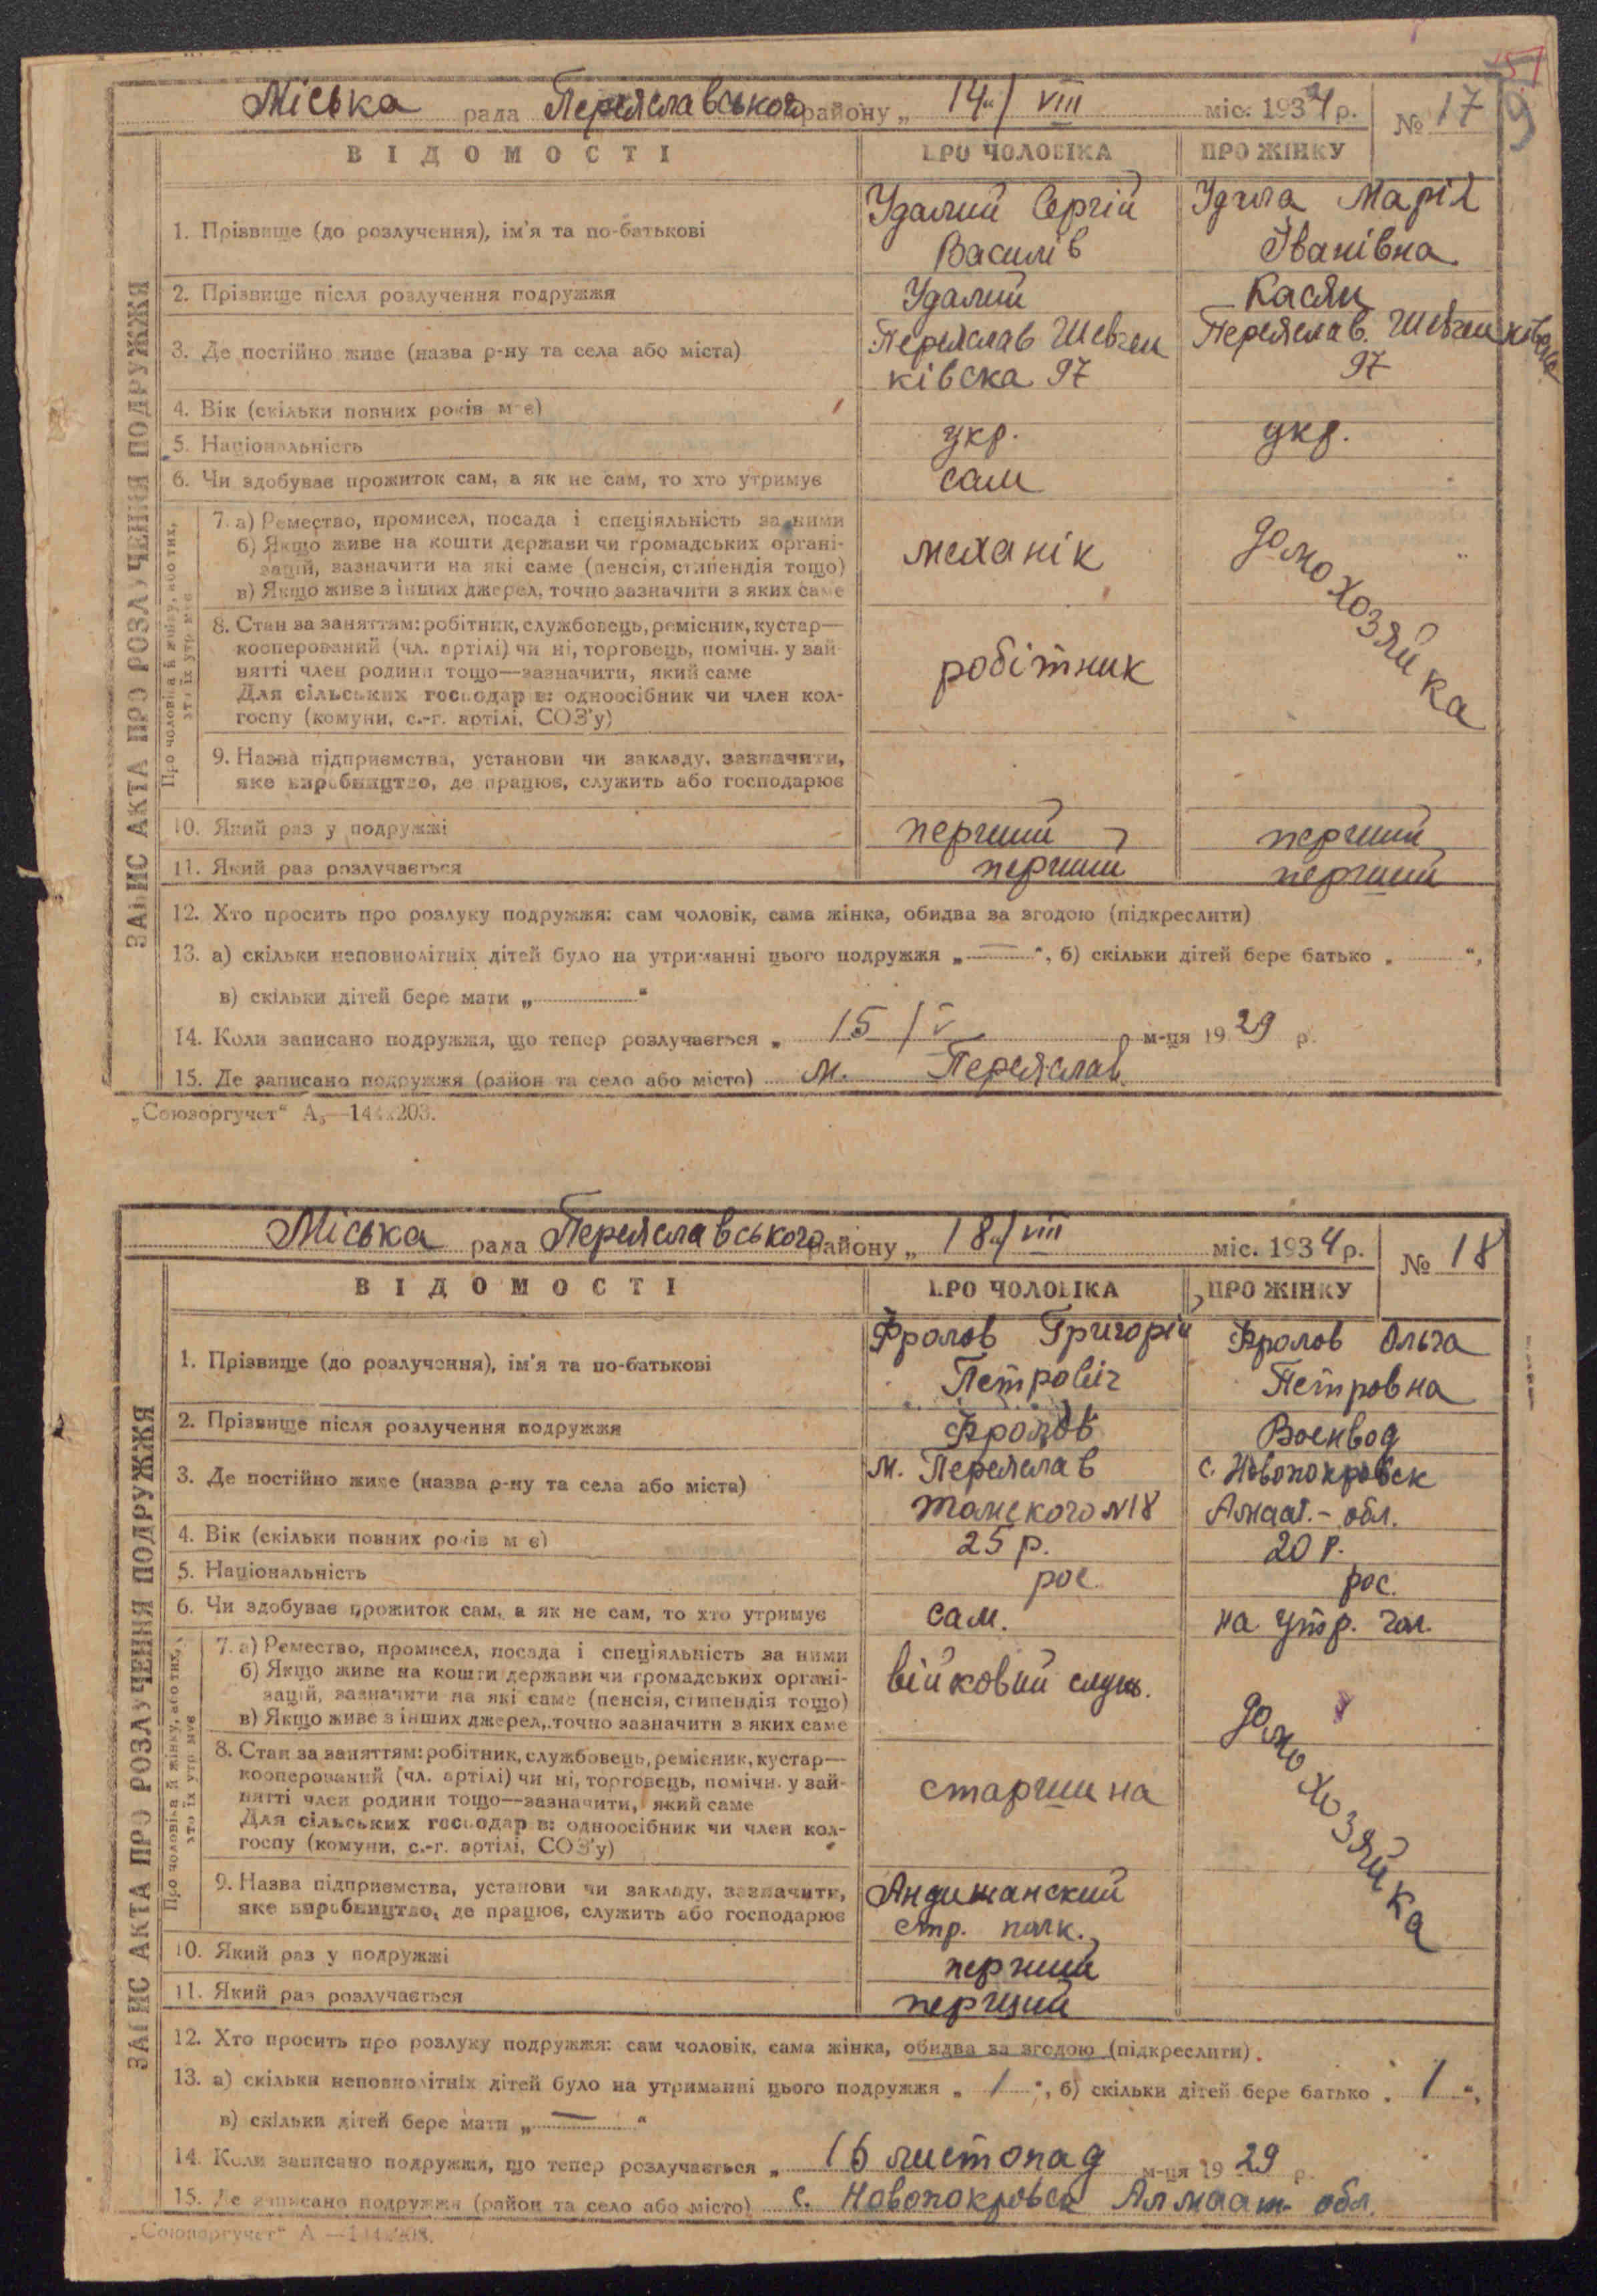 51
9
Міська рада Переяславського району „ 14 " / VIII міс. 1934 р. № 17
ВІДОМОСТІ ПРО ЧОЛОВІКА ПРО ЖІНКУ
ЗАПИС АКТА ПРО РОЗЛУЧЕННЯ ПОДРУЖЖЯ
1. Прізвище (до розлучення), ім'я та по-батькові
Удалий Сергій
Василів
Удала Марія
Іванівна
2. Прізвище після розлучення подружжя
Удалий
Касян
3. Де постійно живе (назва р-ну та села або міста)
Переяслав Шевчен
ківска 97
Переяслав. Шевченківска
97
4. Вік (скільки повних років має)
5. Національність
укр.
укр.
6. Чи здобуває прожиток сам, а як не сам, то хто утримує
сам
Про чоловіка й жінку, або тих,
хто їх утримує
7. а) Ремество, промисел, посада і спеціяльність за ними
б) Якщо живе на кошти держави чи громадських органі-
зацій, зазначити на які саме (пенсія, стипендія тощо)
в) Якщо живе з інших джерел, точно зазначити з яких саме
механік
домохозяйка
8. Стан за заняттям: робітник, службовець, ремісник, кустар—
кооперований (чл. артілі) чи ні, торговець, помічн. у зай-
нятті член родини тощо—зазначити, який саме
Для сільських господарів: одноосібник чи член кол-
госпу (комуни, с.-г. артілі, СОЗ'у)
робітник
9. Назва підприємства, установи чи закладу, зазначити,
яке виробництво, де працює, служить або господарює
10. Який раз у подружжі
перший
перший
11. Який раз розлучається
перший
перший
12. Хто просить про розлуку подружжя: сам чоловік, сама жінка, обидва за згодою (підкреслити)
13. а) скільки неповнолітніх дітей було на утриманні цього подружжя „ — ", б) скільки дітей бере батько „ ",
в) скільки дітей бере мати „ "
14. Коли записано подружжя, що тепер розлучається „ 15 / V м-ця 1929 р.
15. Де записано подружжя (район та село або місто) м. Переяслав
„Союзоргучет" А₅—144х203.
Міська рада Переяславського району „ 18 " / VIII міс. 1934 р. № 18
ВІДОМОСТІ ПРО ЧОЛОВІКА ПРО ЖІНКУ
ЗАПИС АКТА ПРО РОЗЛУЧЕННЯ ПОДРУЖЖЯ
1. Прізвище (до розлучення), ім'я та по-батькові
Фролов Григорій
Петровіч
Фролов Ольга
Петровна
2. Прізвище після розлучення подружжя
Фролов
Военвод
3. Де постійно живе (назва р-ну та села або міста)
м. Переяслав
Томского №18
с. Новопокровск
Алмаат.- обл.
4. Вік (скільки повних років має)
25 р.
20 р.
5. Національність
рос.
рос.
6. Чи здобуває прожиток сам, а як не сам, то хто утримує
сам.
на утр. чол.
Про чоловіка й жінку, або тих,
хто їх утримує
7. а) Ремество, промисел, посада і спеціяльність за ними
б) Якщо живе на кошти держави чи громадських органі-
зацій, зазначити на які саме (пенсія, стипендія тощо)
в) Якщо живе з інших джерел, точно зазначити з яких саме
війковий служ.
домохозяйка
8. Стан за заняттям: робітник, службовець, ремісник, кустар—
кооперований (чл. артілі) чи ні, торговець, помічн. у зай-
нятті член родини тощо—зазначити, який саме
Для сільських господарів: одноосібник чи член кол-
госпу (комуни, с.-г. артілі, СОЗ'у)
старшина
9. Назва підприємства, установи чи закладу, зазначити,
яке виробництво, де працює, служить або господарює
Андижанский
стр. полк.
10. Який раз у подружжі
перший
11. Який раз розлучається
перщий
12. Хто просить про розлуку подружжя: сам чоловік, сама жінка, обидва за згодою (підкреслити).
13. а) скільки неповнолітніх дітей було на утриманні цього подружжя „ 1 ", б) скільки дітей бере батько „ 1 ",
в) скільки дітей бере мати „ — "
14. Коли записано подружжя, що тепер розлучається „ 16 листопад м-ця 1929 р.
15. Де записано подружжя (район та село або місто) с. Новопокровск Алмаат- обл.
„Союзоргучет" А —144х203.